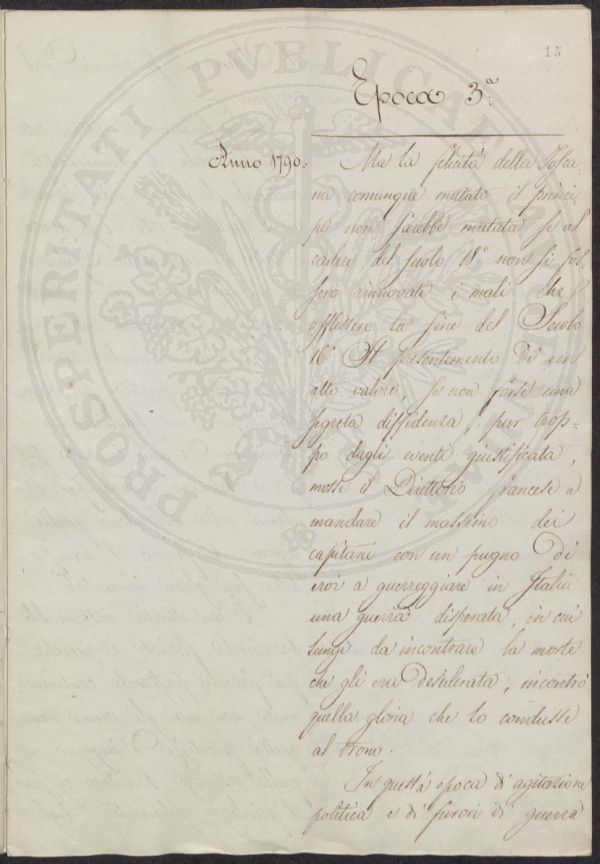 15
PROSPERITATI PUBLICAE
Epoca 3.ª
Anno 1790.
Ma la felicità della Tosca-
na comunque mutato il princi-
pe non sarebbe mutata se al
cadere del secolo 18° non si fos-
sero rinnovati i mali che
afflissero la fine del Secolo
16° Il presentimento di un
alto valore, se non forse una
segreta diffidenza, pur trop-
po dagli eventi giustificata,
mosse il Direttorio francese a
mandare il massimo dei
capitani con un pugno di
eroi a guerreggiare in Italia
una guerra disperata, in cui
lungi da incontrare la morte
che gli era desiderata, incontrò
quella gloria che lo condusse
al trono.
In questa epoca di agitazione
politica e di furori di guerra